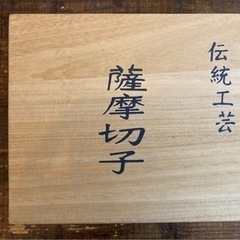 伝統工芸
薩摩切子